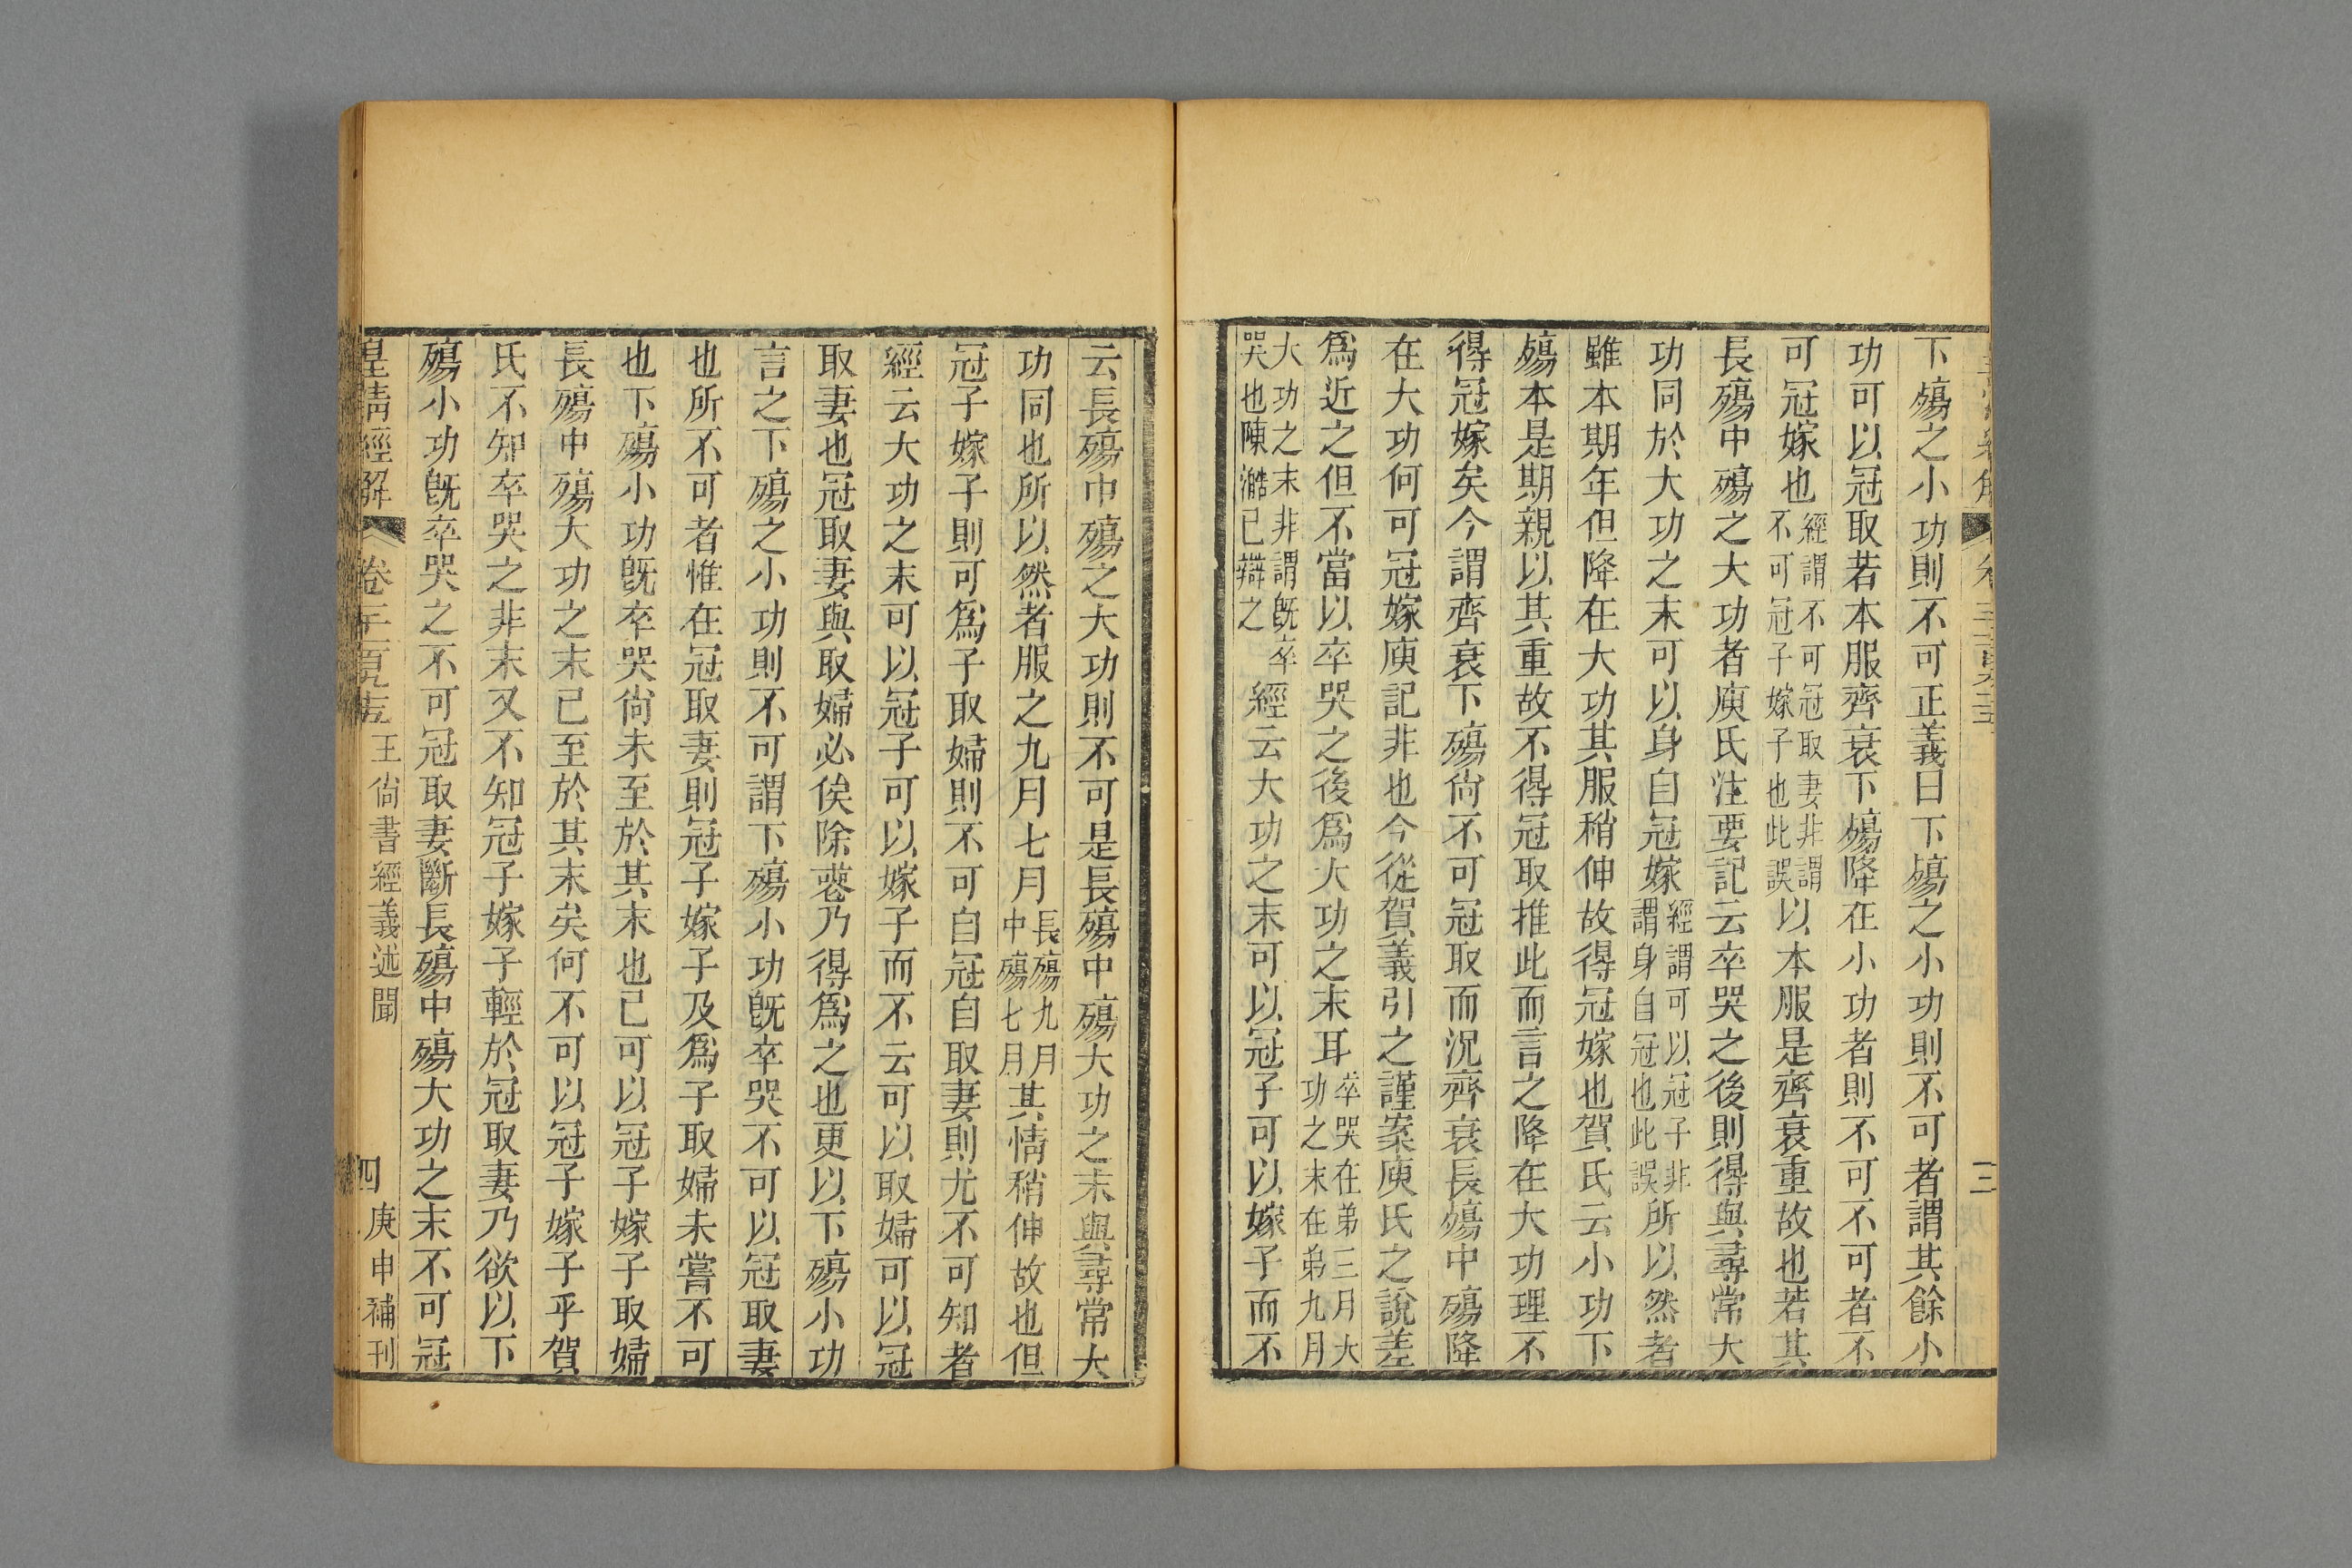 下殤之小功則不可正義曰下殤之小功則不可者謂其餘小
功可以冠取若本服齊衰下殤降在小功者則不可不可者不
可冠嫁也經謂不可冠取妻非謂不可冠子嫁子也此誤以本服是齊衰重故也若其
長殤中殤之大功者庾氏注要記云卒哭之後則得與尋常大
功同於大功之末可以身自冠嫁經謂可以冠子非謂身自冠也此誤所以然者
雖本期年但降在大功其服稍伸故得冠嫁也賀氏云小功下
殤本是期親以其重故不得冠取推此而言之降在大功理不
得冠嫁矣今謂齊衰下殤尙不可冠取而況齊衰長殤中殤降
在大功何可冠嫁庾記非也今從賀義引之謹案庾氏之說差
爲近之但不當以卒哭之後爲大功之末耳卒哭在弟三月大功之末在弟九月
大功之末非謂旣卒哭也陳澔已辯之經云大功之末可以冠子可以嫁子而不
三
云長殤中殤之大功則不可是長殤中殤大功之末與尋常大
功同也所以然者服之九月七月長殤九月中殤七月其情稍伸故也但
冠子嫁子則可爲子取婦則不可自冠自取妻則尤不可知者
經云大功之末可以冠子可以嫁子而不云可以取婦可以冠
取妻也冠取妻與取婦必俟除喪乃得爲之也更以下殤小功
言之下殤之小功則不可謂下殤小功旣卒哭不可以冠取妻
也所不可者惟在冠取妻則冠子嫁子及爲子取婦未嘗不可
也下殤小功旣卒哭尙未至於其末也已可以冠子嫁子取婦
長殤中殤大功之末已至於其末矣何不可以冠子嫁子乎賀
氏不知卒哭之非末又不知冠子嫁子輕於冠取妻乃欲以下
殤小功旣卒哭之不可冠取妻斷長殤中殤大功之末不可冠
皇清經解 王尙書經義述聞 四 庚申補刊